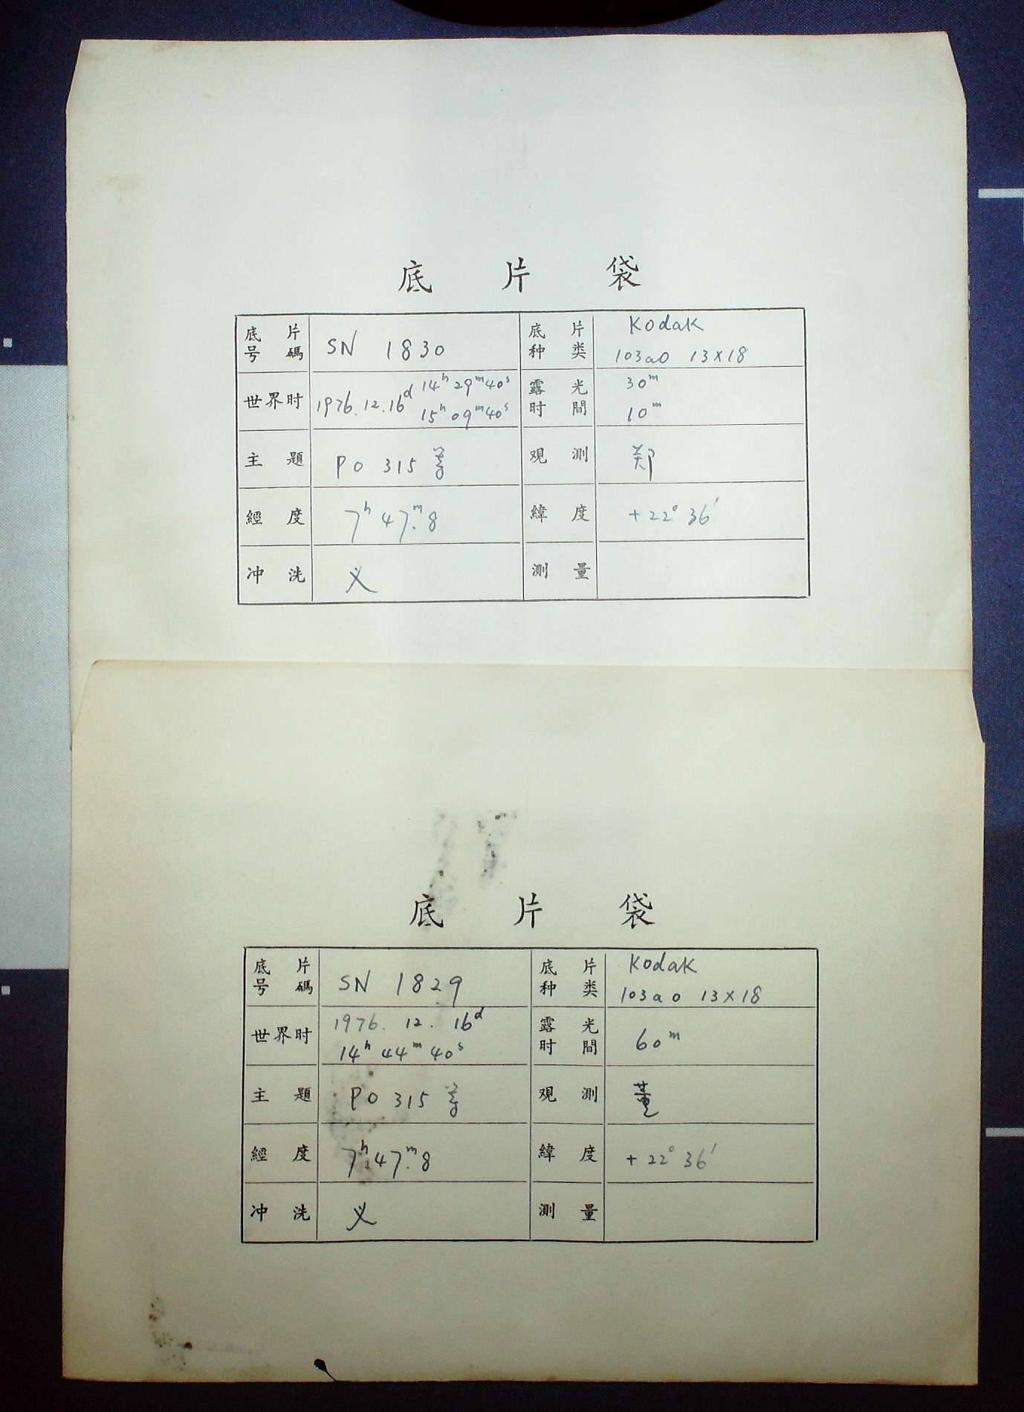 底片袋
底片号碼 SN 1830 底片种类 Kodak
103a0 13×18
世界时 1976.12.16ᵈ 14ʰ29ᵐ40ˢ 露光时間 30ᵐ
15ʰ09ᵐ40ˢ 10ᵐ
主題 PO 315 等 观測 郑
經度 7ʰ47ᵐ.8 緯度 +22°36′
冲洗 义 測量
底片袋
底片号碼 SN 1829 底片种类 Kodak
103a0 13×18
世界时 1976.12.16ᵈ 露光时間 60ᵐ
14ʰ44ᵐ40ˢ
主題 PO 315 等 观測 董
經度 7ʰ47ᵐ.8 緯度 +22°36′
冲洗 义 測量